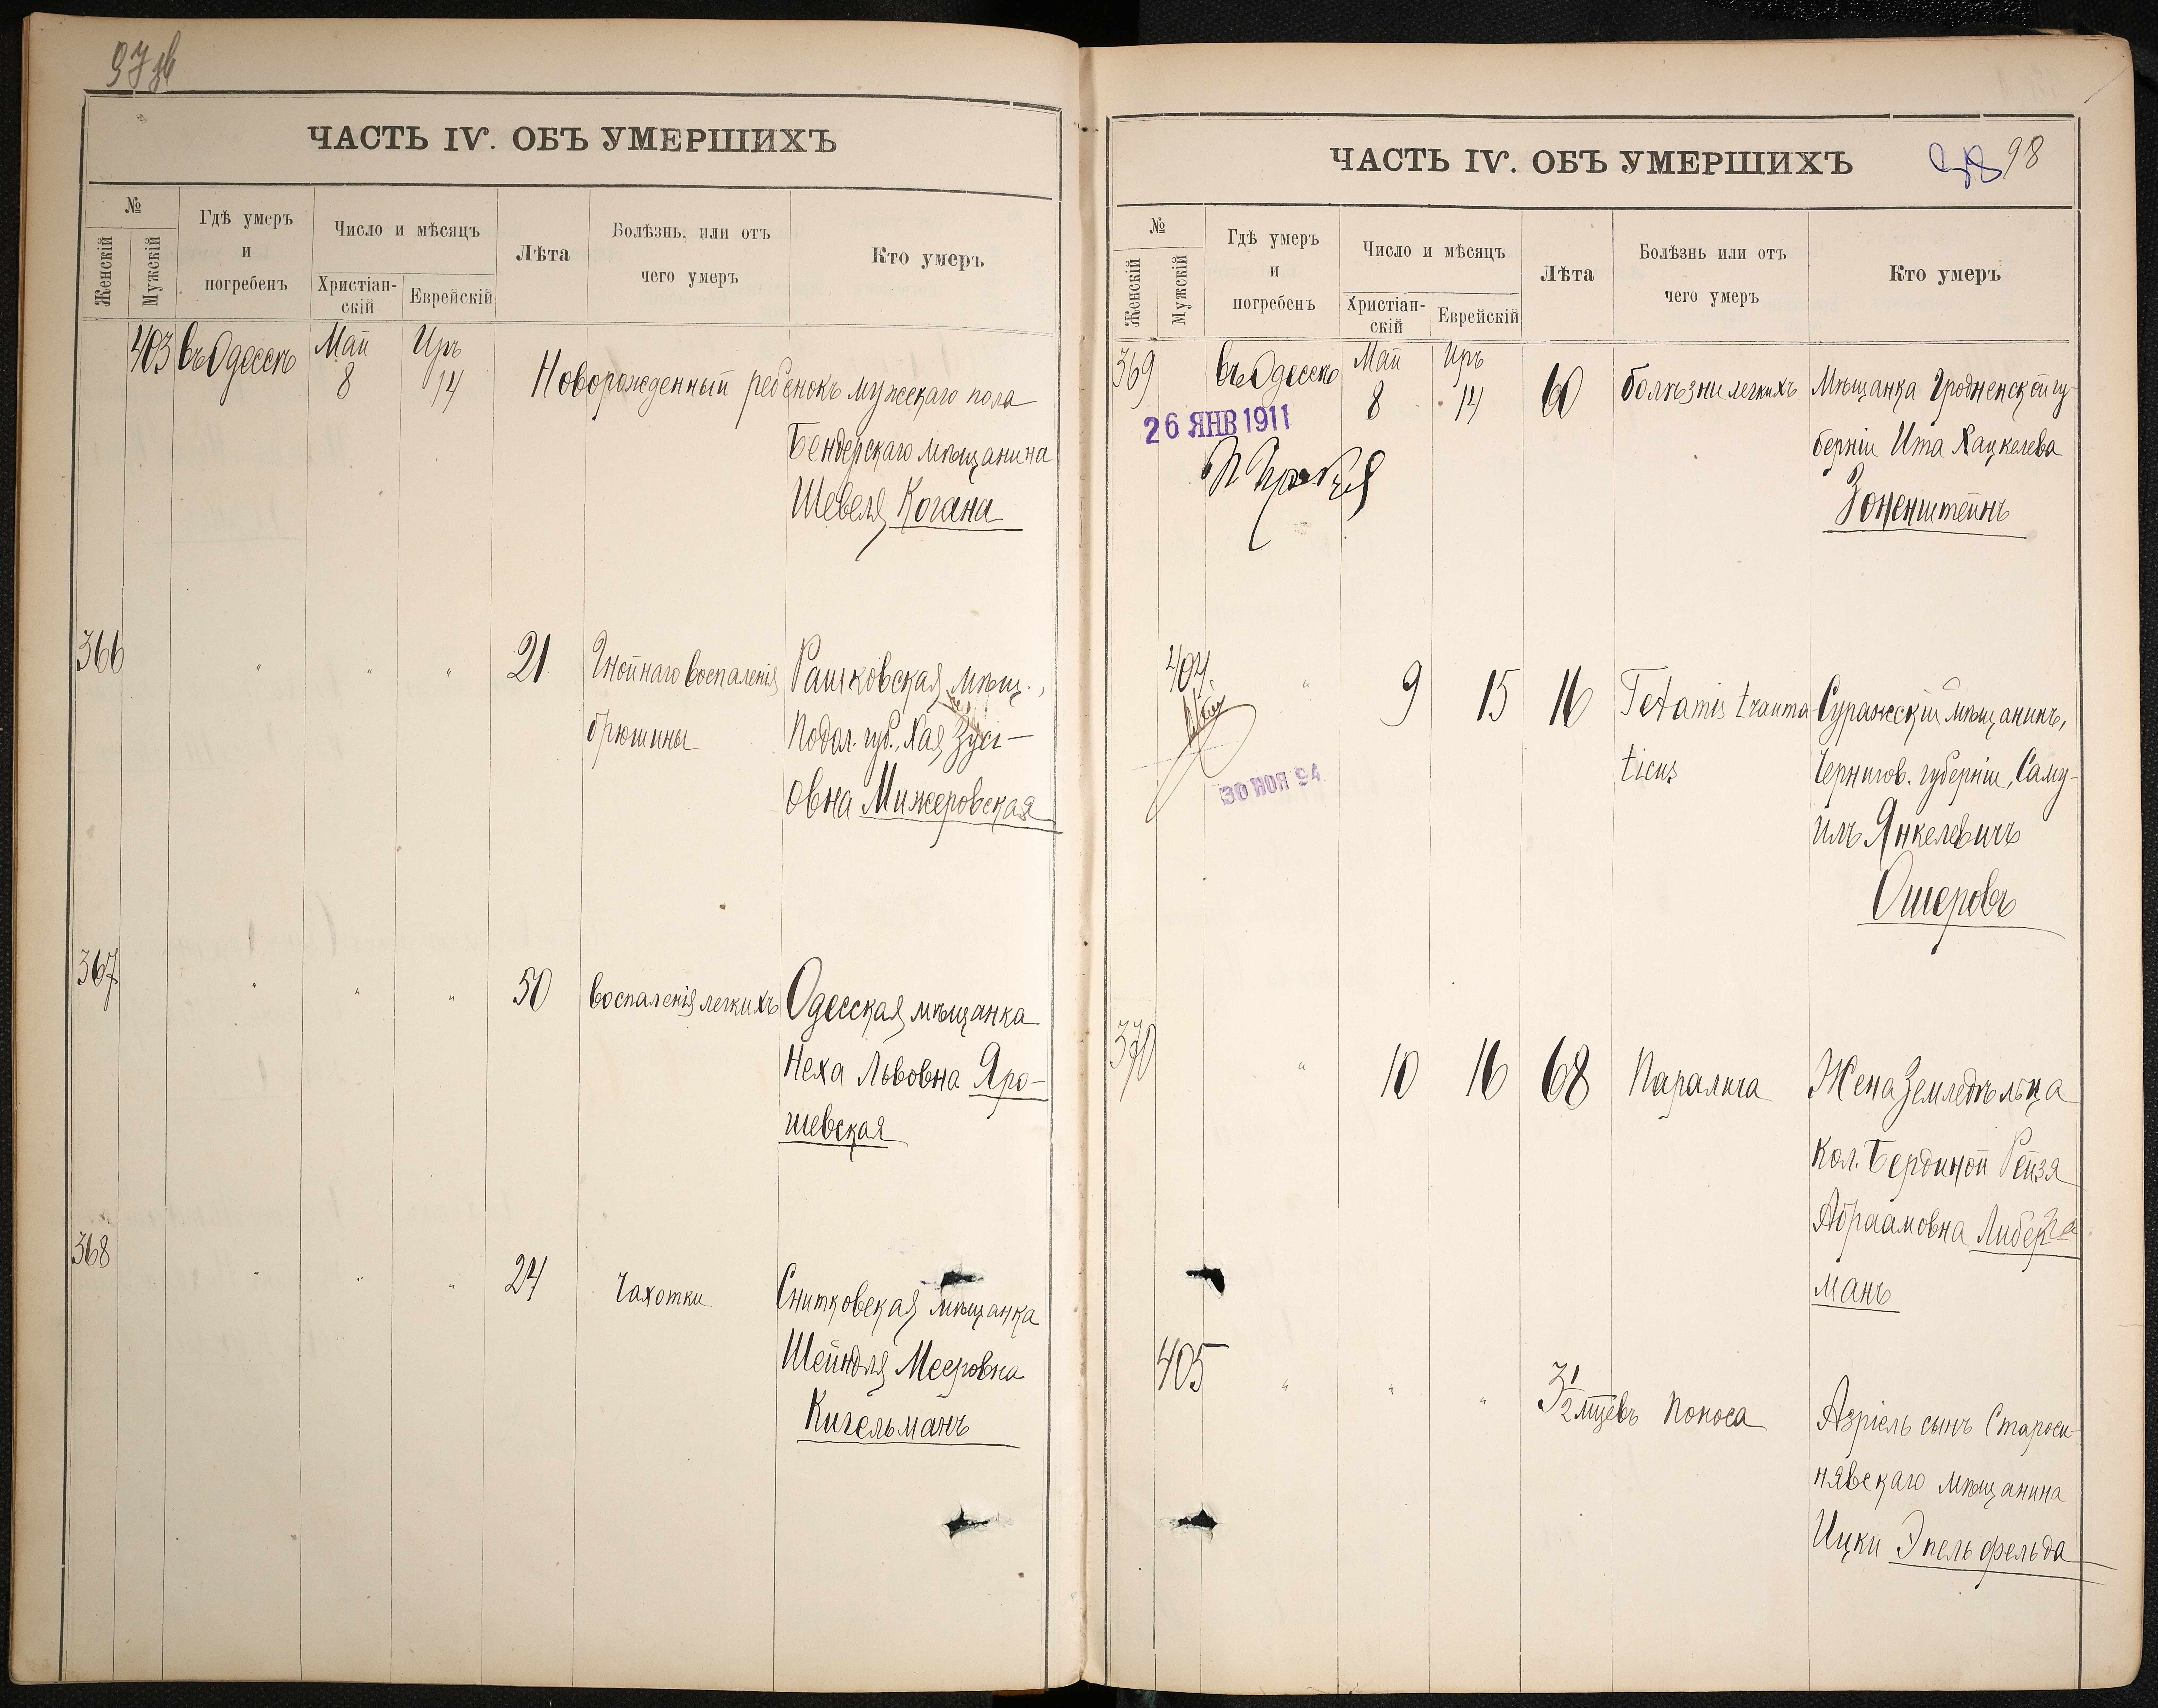 ЧАСТЬ IV. ОБЪ УМЕРШИХЪ
№
Женскій
Мужскій
Гдѣ умеръ
и
погребенъ
Число и мѣсяцъ
Христіан-
скій
Еврейскій
Лѣта
Болѣзнь, или отъ
чего умеръ
Кто умеръ
403 въ Одессѣ Май Иръ
8 14 Новорожденный ребенокъ мужскаго пола
Бендерскаго мѣщанина
Шевеля Когана
366 " " " 21 Гнойнаго воспаленія Рашковская мѣщ.,
брюшины Подол. губ., Хая Зусь-
овна Мижеровская
367 " " " 50 воспаленія легкихъ Одесская мѣщанка
Неха Львовна Яро-
шевская
368 " " " 24 Чахотки Снитковская мѣщанка
Шейндля Мееровна
Кигельманъ
ЧАСТЬ IV. ОБЪ УМЕРШИХЪ
98
№
Женскій
Мужскій
Гдѣ умеръ
и
погребенъ
Число и мѣсяцъ
Христіан-
скій
Еврейскій
Лѣта
Болѣзнь или отъ
чего умеръ
Кто умеръ
369 въ Одессѣ Май Иръ
8 14 60 болѣзни легкихъ Мѣщанка Гродненской гу-
берніи Ита Хацкелева
Зоненштейнъ
26 ЯНВ 1911
404 " 9 15 16 Tetanis trauma- Суражскій мѣщанинъ,
ticus Чернигов. губерніи, Саму-
илъ Янкелевичъ
Ошеровъ
30 НОЯ 94
370 " 10 16 68 Паралича Жена Земледѣльца
Кол. Бердиной Рейзя
Абраамовна Либер-
манъ
405 " " " 3 1/2 мцевъ Поноса Азріель сынъ Староси-
нявскаго мѣщанина
Ицки Эпельфельда